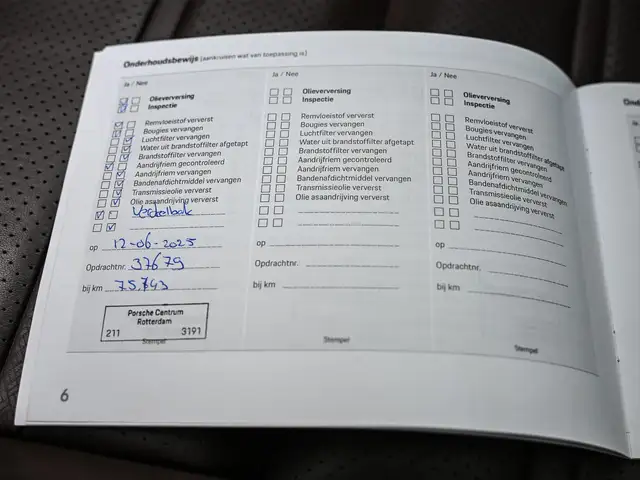 Onderhoudsbewijs (aankruisen wat van toepassing is)
Ja / Nee
Olieverversing
Inspectie
Remvloeistof ververst
Bougies vervangen
Luchtfilter vervangen
Water uit brandstoffilter afgetapt
Brandstoffilter vervangen
Aandrijfriem gecontroleerd
Aandrijfriem vervangen
Bandenafdichtmiddel vervangen
Transmissieolie ververst
Olie asaandrijving ververst
Verdelbak
op 12-06-2025
Opdrachtnr. 37679
bij km 75.743
Porsche Centrum
Rotterdam
211 3191
Stempel
Ja / Nee
Olieverversing
Inspectie
Remvloeistof ververst
Bougies vervangen
Luchtfilter vervangen
Water uit brandstoffilter afgetapt
Brandstoffilter vervangen
Aandrijfriem gecontroleerd
Aandrijfriem vervangen
Bandenafdichtmiddel vervangen
Transmissieolie ververst
Olie asaandrijving ververst
op
Opdrachtnr.
bij km
Stempel
Ja / Nee
Olieverversing
Inspectie
Remvloeistof ververst
Bougies vervangen
Luchtfilter vervangen
Water uit brandstoffilter afgetapt
Brandstoffilter vervangen
Aandrijfriem gecontroleerd
Aandrijfriem vervangen
Bandenafdichtmiddel vervangen
Transmissieolie ververst
Olie asaandrijving ververst
op
Opdrachtnr.
bij km
Stempel
6